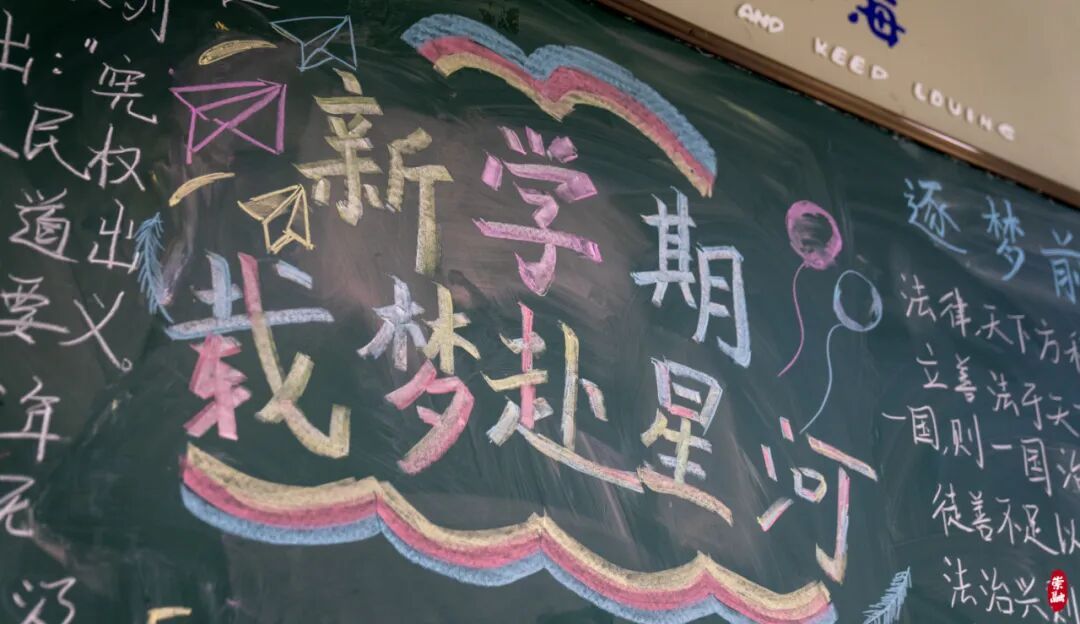 海
AND KEEP LOUING
出：“宪
民权
道出
要义。
年
无
新学期
载梦赴星河
逐梦前
法律,天下方
立善法于天
一国,则一国治
徒善不足以
法治兴则
崇融